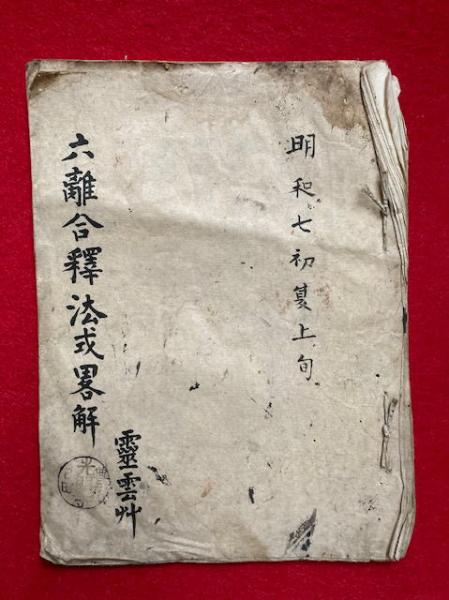 明和七初夏上旬
六離合釋法式畧解
靈雲艸